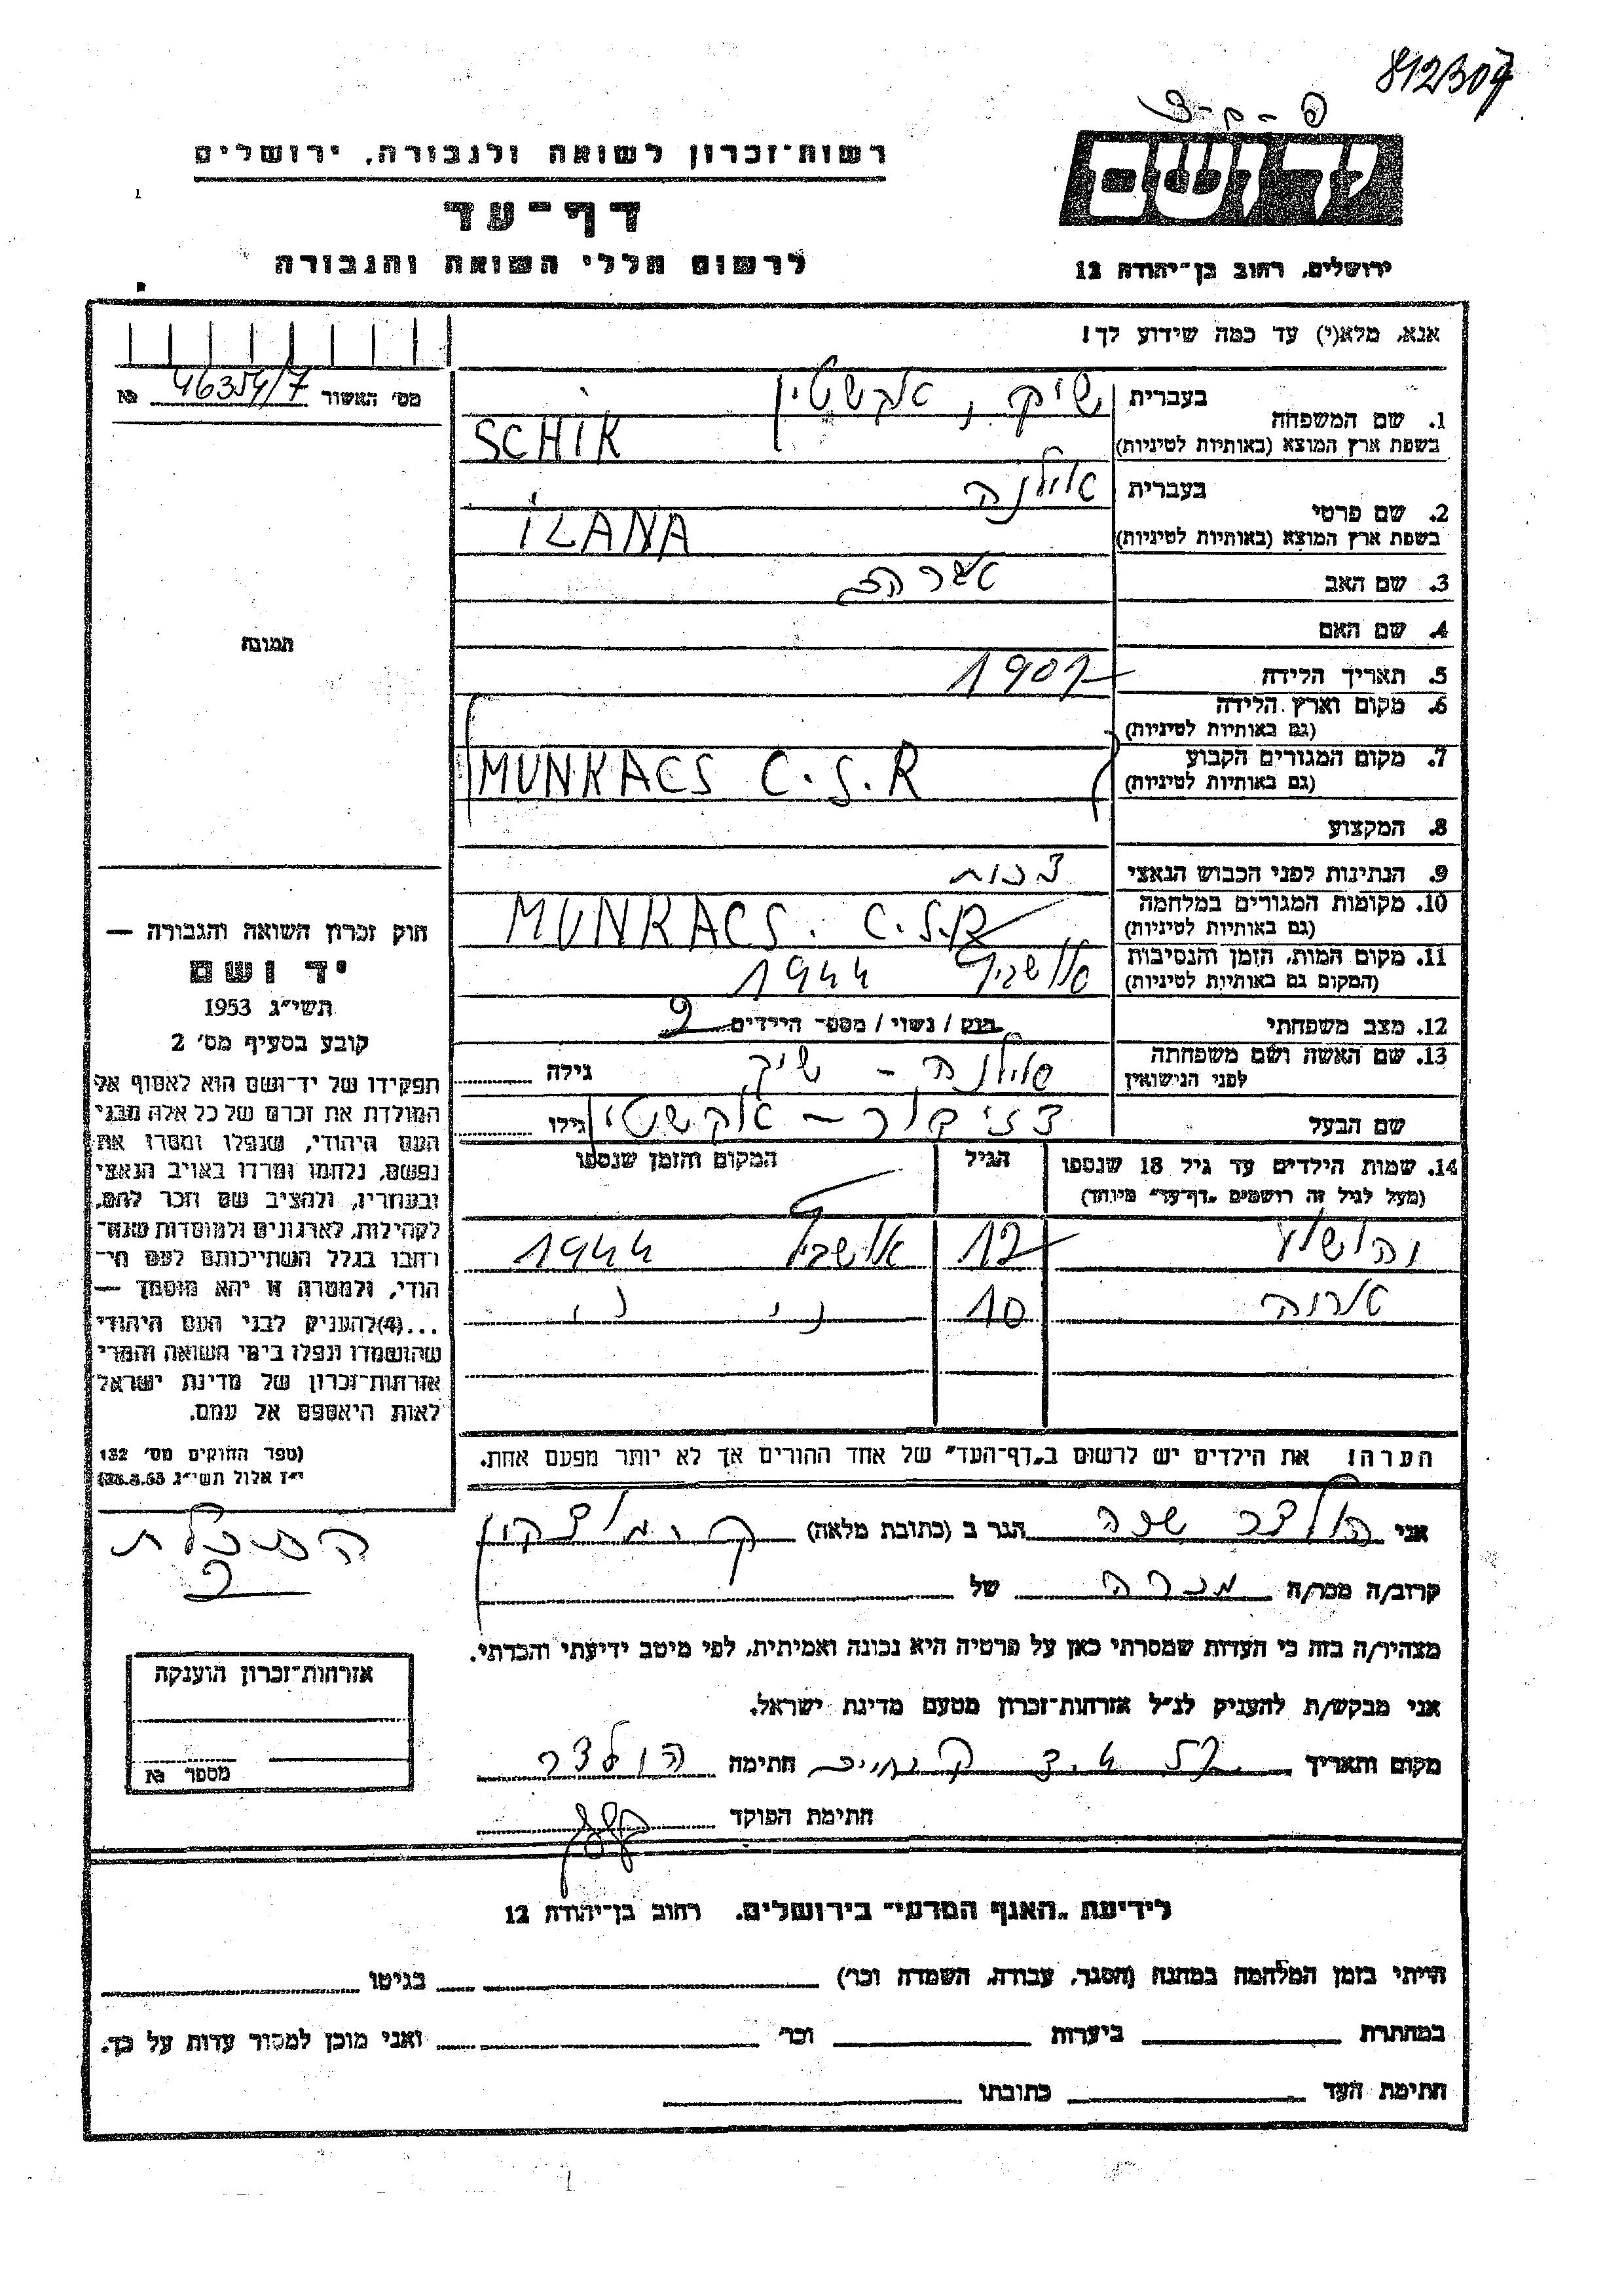 812307
רשות־זכרון לשואה ולגבורה, ירושלים
יד ושם
דף־עד
לרשום חללי השואה והגבורה
ירושלים, רחוב בן־יהודה 12
אנא, מלא(י) עד כמה שידוע לך!
מס׳ האשור 46354/7 №
1. שם המשפחה
בעברית שיק,
בשפת ארץ המוצא (באותיות לטיניות) SCHIK
2. שם פרטי
בעברית אילנה
בשפת ארץ המוצא (באותיות לטיניות) ILANA
3. שם האב
4. שם האם
5. תאריך הלידה 1907
6. מקום וארץ הלידה
(גם באותיות לטיניות)
7. מקום המגורים הקבוע
(גם באותיות לטיניות) MUNKACS C.S.R
8. המקצוע
9. הנתינות לפני הכבוש הנאצי צכות
10. מקומות המגורים במלחמה
(גם באותיות לטיניות) MUNKACS. C.S.R
11. מקום המות, הזמן והנסיבות
(המקום גם באותיות לטיניות) אושביץ 1944
12. מצב משפחתי רווק / נשוי / מספר הילדים 2
13. שם האשה ושם משפחתה
לפני הנישואין אילנה - שיק גילה
שם הבעל גילו
14. שמות הילדים עד גיל 18 שנספו
(מעל לגיל זה רושמים „דף־עד״ מיוחד)
הגיל
המקום והזמן שנספו
12 אושביץ 1944
10 ״ ״
הערה! את הילדים יש לרשום ב„דף־העד״ של אחד ההורים אך לא יותר מפעם אחת.
תמונה
חוק זכרון השואה והגבורה —
יד ושם
תשי״ג 1953
קובע בסעיף מס׳ 2
תפקידו של יד־ושם הוא לאסוף אל
המולדת את זכרם של כל אלה מבני
העם היהודי, שנפלו ומסרו את
נפשם, נלחמו ומרדו באויב הנאצי
ובעוזריו, ולהציב שם וזכר להם,
לקהילות, לארגונים ולמוסדות שנח־
רבו בגלל השתייכותם לעם הי־
הודי, ולמטרה זו יהא מוסמך —
...(4)להעניק לבני העם היהודי
שהושמדו ונפלו בימי השואה והמרי
אזרחות־זכרון של מדינת ישראל
לאות היאספם אל עמם.
(ספר החוקים מס׳ 132
י״ז אלול תשי״ג 28.8.53)
אני הולצר הגר ב (כתובת מלאה)
קרוב/ה מכר/ה מכרה של
מצהיר/ה בזה כי העדות שמסרתי כאן על פרטיה היא נכונה ואמיתית, לפי מיטב ידיעתי והכרתי.
אני מבקש/ת להעניק לנ״ל אזרחות־זכרון מטעם מדינת ישראל.
מקום ותאריך חתימה הולצר
חתימת הפוקד
אזרחות־זכרון הוענקה
מספר №
לידיעת „האגף המדעי״ בירושלים, רחוב בן־יהודה 12
הייתי בזמן המלחמה במחנה (הסגר, עבודה, השמדה וכו׳) בגיטו
במחתרת ביערות וכו׳ ואני מוכן למסור עדות על כך.
חתימת העד כתובתו